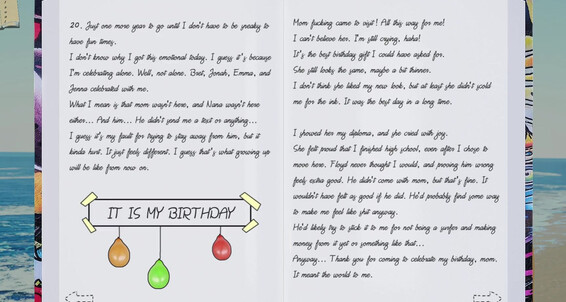 20. Just one more year to go until I don't have to be sneaky to
have fun times.
I don't know why I got this emotional today. I guess it's because
I'm celebrating alone. Well, not alone. Bret, Jonah, Emma, and
Jenna celebrated with me.
What I mean is that mom wasn't here, and Nana wasn't here
either... And him... He didn't send me a text or anything...
I guess it's my fault for trying to stay away from him, but it
kinda hurt. It just feels different. I guess that's what growing up
will be like from now on.
IT IS MY BIRTHDAY
Mom fucking came to visit! All this way for me!
I can't believe her. I'm still crying, haha!
It's the best birthday gift I could have asked for.
She still looks the same, maybe a bit thinner.
I don't think she liked my new look, but at least she didn't scold
me for the ink. It was the best day in a long time.
I showed her my diploma, and she cried with joy.
She felt proud that I finished high school, even after I chose to
move here. Floyd never thought I would, and proving him wrong
feels extra good. He didn't come with mom, but that's fine. It
wouldn't have felt as good if he did. He'd probably find some way
to make me feel like shit anyway.
He'd likely try to stick it to me for not being a surfer and making
money from it yet or something like that...
Anyway... Thank you for coming to celebrate my birthday, mom.
It meant the world to me.